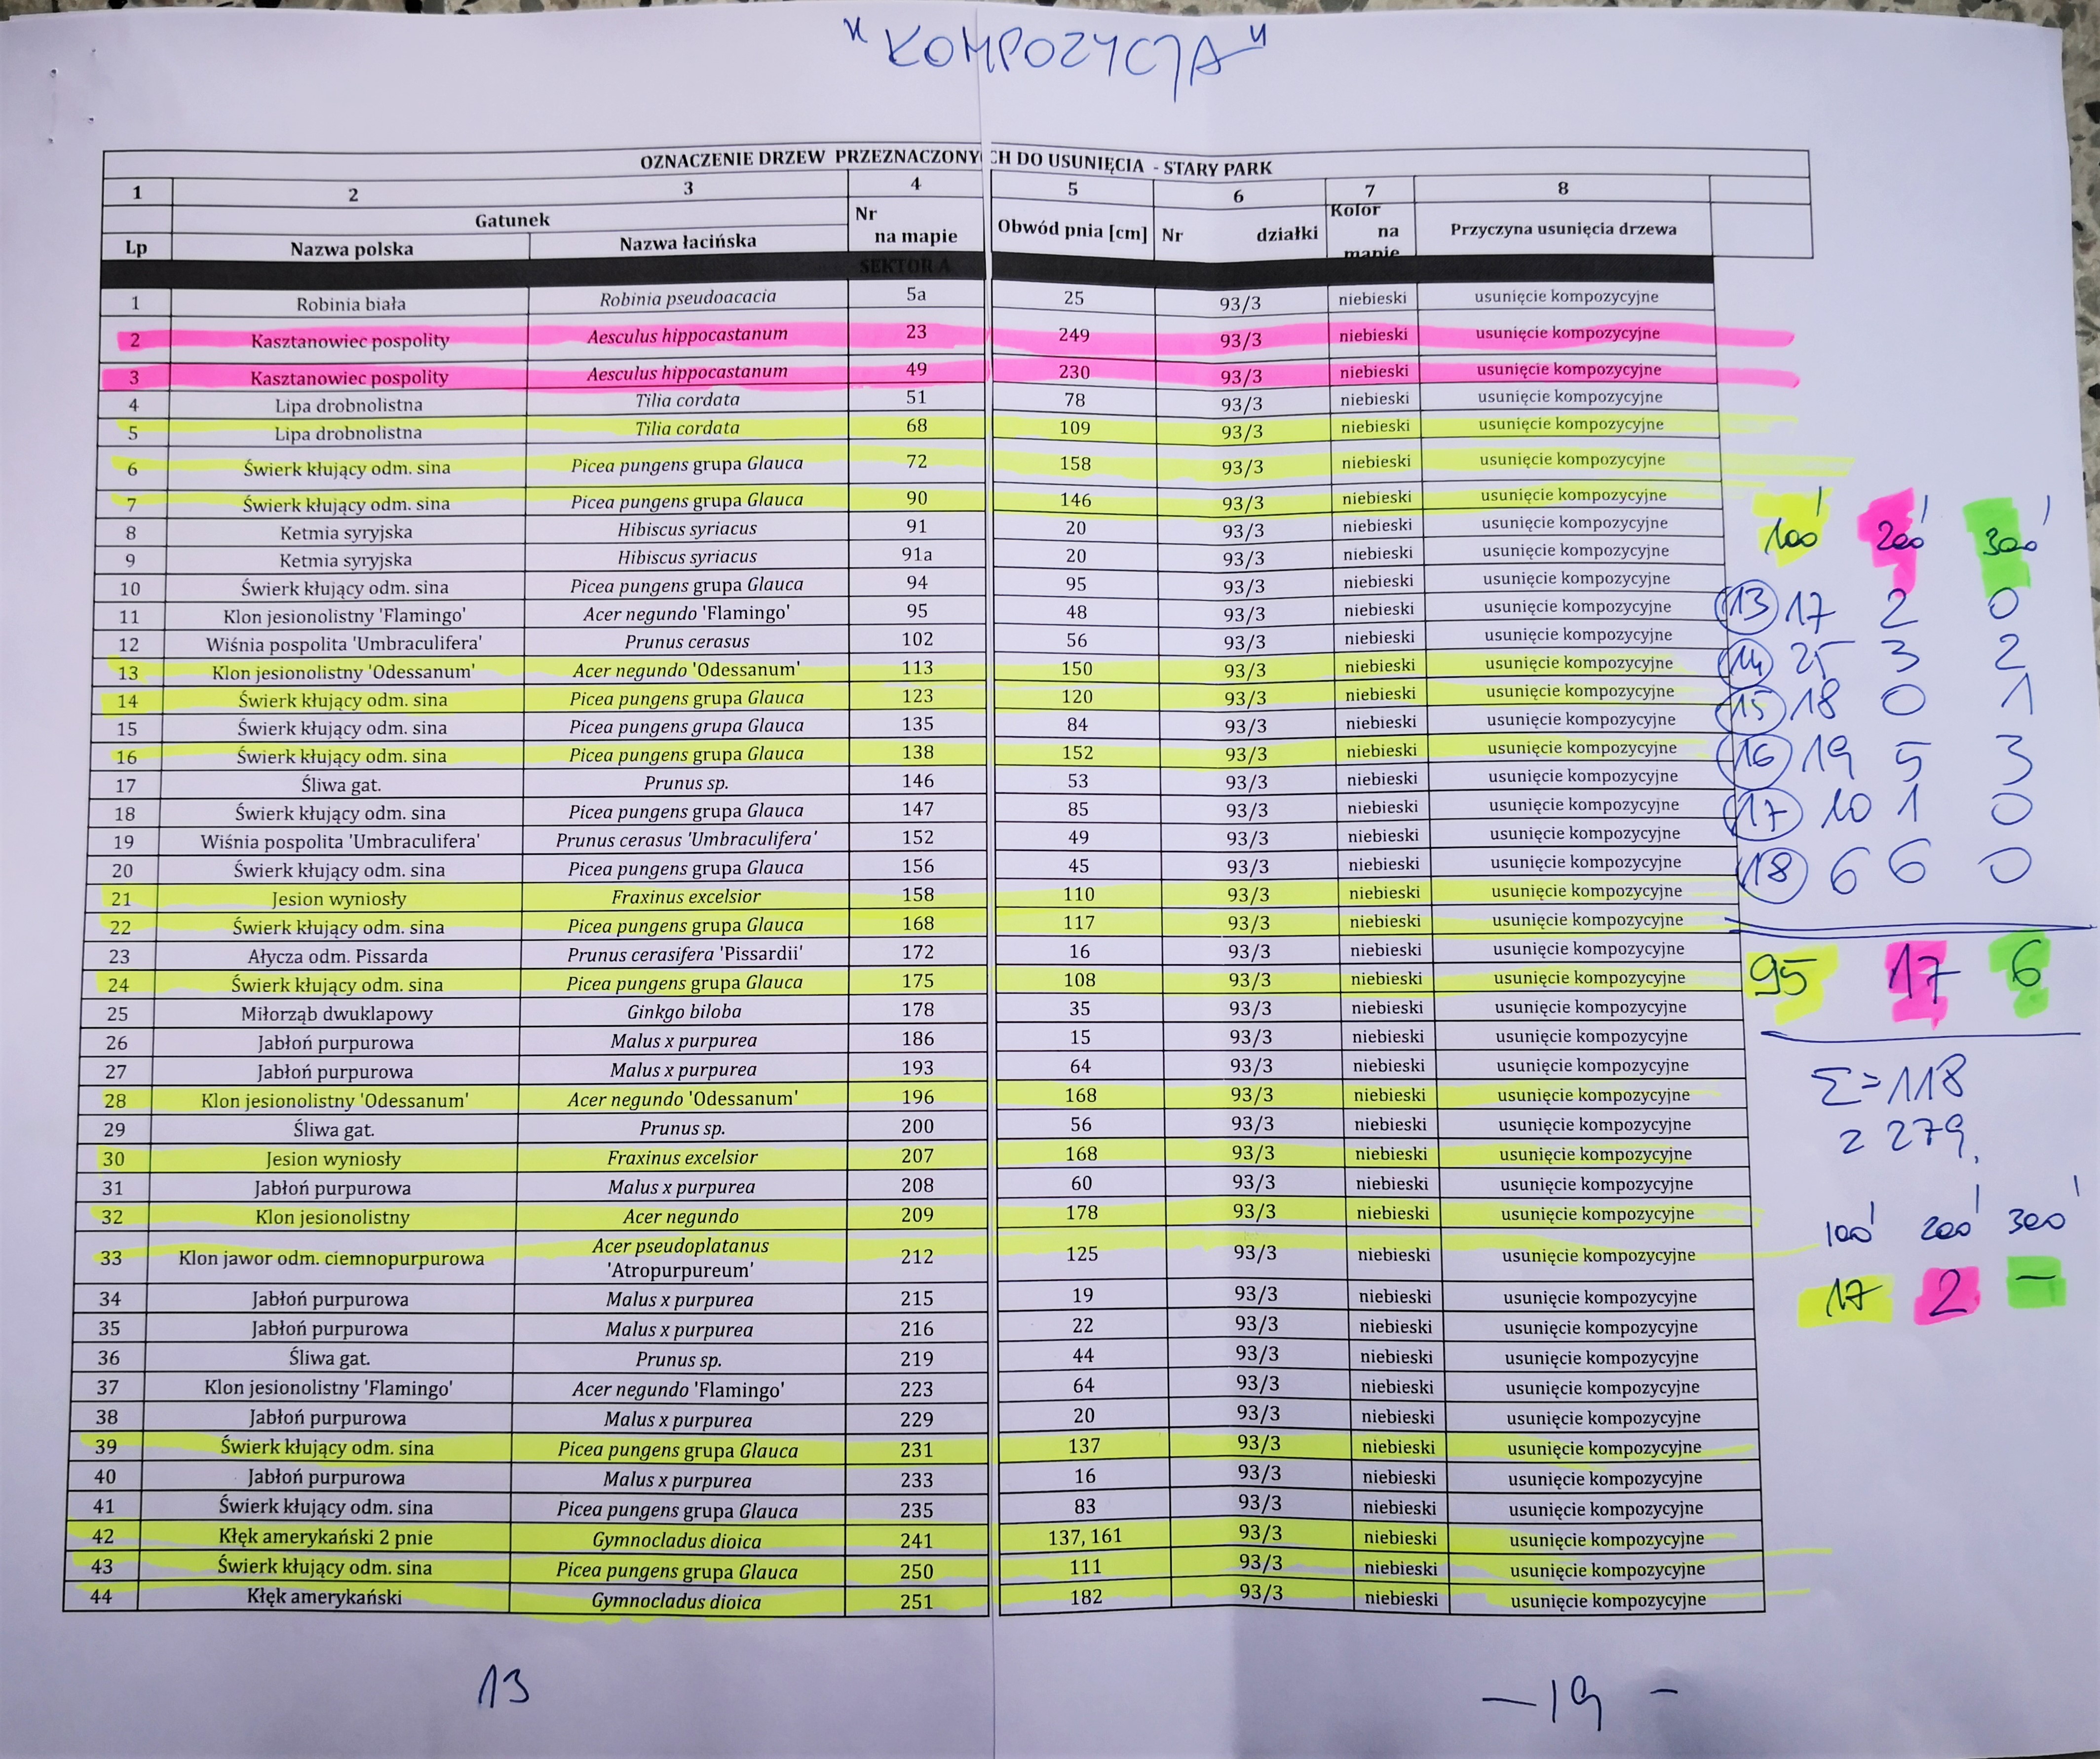 "KOMPOZYCJA"
OZNACZENIE DRZEW PRZEZNACZONYCH DO USUNIĘCIA - STARY PARK
1 2 3 4 5 6 7 8
Gatunek
Lp Nazwa polska Nazwa łacińska Nr na mapie Obwód pnia [cm] Nr działki Kolor na mapie Przyczyna usunięcia drzewa
SEKTOR A
1 Robinia biała Robinia pseudoacacia 5a 25 93/3 niebieski usunięcie kompozycyjne
2 Kasztanowiec pospolity Aesculus hippocastanum 23 249 93/3 niebieski usunięcie kompozycyjne
3 Kasztanowiec pospolity Aesculus hippocastanum 49 230 93/3 niebieski usunięcie kompozycyjne
4 Lipa drobnolistna Tilia cordata 51 78 93/3 niebieski usunięcie kompozycyjne
5 Lipa drobnolistna Tilia cordata 68 109 93/3 niebieski usunięcie kompozycyjne
6 Świerk kłujący odm. sina Picea pungens grupa Glauca 72 158 93/3 niebieski usunięcie kompozycyjne
7 Świerk kłujący odm. sina Picea pungens grupa Glauca 90 146 93/3 niebieski usunięcie kompozycyjne
8 Ketmia syryjska Hibiscus syriacus 91 20 93/3 niebieski usunięcie kompozycyjne
9 Ketmia syryjska Hibiscus syriacus 91a 20 93/3 niebieski usunięcie kompozycyjne
10 Świerk kłujący odm. sina Picea pungens grupa Glauca 94 95 93/3 niebieski usunięcie kompozycyjne
11 Klon jesionolistny 'Flamingo' Acer negundo 'Flamingo' 95 48 93/3 niebieski usunięcie kompozycyjne
12 Wiśnia pospolita 'Umbraculifera' Prunus cerasus 102 56 93/3 niebieski usunięcie kompozycyjne
13 Klon jesionolistny 'Odessanum' Acer negundo 'Odessanum' 113 150 93/3 niebieski usunięcie kompozycyjne
14 Świerk kłujący odm. sina Picea pungens grupa Glauca 123 120 93/3 niebieski usunięcie kompozycyjne
15 Świerk kłujący odm. sina Picea pungens grupa Glauca 135 84 93/3 niebieski usunięcie kompozycyjne
16 Świerk kłujący odm. sina Picea pungens grupa Glauca 138 152 93/3 niebieski usunięcie kompozycyjne
17 Śliwa gat. Prunus sp. 146 53 93/3 niebieski usunięcie kompozycyjne
18 Świerk kłujący odm. sina Picea pungens grupa Glauca 147 85 93/3 niebieski usunięcie kompozycyjne
19 Wiśnia pospolita 'Umbraculifera' Prunus cerasus 'Umbraculifera' 152 49 93/3 niebieski usunięcie kompozycyjne
20 Świerk kłujący odm. sina Picea pungens grupa Glauca 156 45 93/3 niebieski usunięcie kompozycyjne
21 Jesion wyniosły Fraxinus excelsior 158 110 93/3 niebieski usunięcie kompozycyjne
22 Świerk kłujący odm. sina Picea pungens grupa Glauca 168 117 93/3 niebieski usunięcie kompozycyjne
23 Ałycza odm. Pissarda Prunus cerasifera 'Pissardii' 172 16 93/3 niebieski usunięcie kompozycyjne
24 Świerk kłujący odm. sina Picea pungens grupa Glauca 175 108 93/3 niebieski usunięcie kompozycyjne
25 Miłorząb dwuklapowy Ginkgo biloba 178 35 93/3 niebieski usunięcie kompozycyjne
26 Jabłoń purpurowa Malus x purpurea 186 15 93/3 niebieski usunięcie kompozycyjne
27 Jabłoń purpurowa Malus x purpurea 193 64 93/3 niebieski usunięcie kompozycyjne
28 Klon jesionolistny 'Odessanum' Acer negundo 'Odessanum' 196 168 93/3 niebieski usunięcie kompozycyjne
29 Śliwa gat. Prunus sp. 200 56 93/3 niebieski usunięcie kompozycyjne
30 Jesion wyniosły Fraxinus excelsior 207 168 93/3 niebieski usunięcie kompozycyjne
31 Jabłoń purpurowa Malus x purpurea 208 60 93/3 niebieski usunięcie kompozycyjne
32 Klon jesionolistny Acer negundo 209 178 93/3 niebieski usunięcie kompozycyjne
33 Klon jawor odm. ciemnopurpurowa Acer pseudoplatanus 'Atropurpureum' 212 125 93/3 niebieski usunięcie kompozycyjne
34 Jabłoń purpurowa Malus x purpurea 215 19 93/3 niebieski usunięcie kompozycyjne
35 Jabłoń purpurowa Malus x purpurea 216 22 93/3 niebieski usunięcie kompozycyjne
36 Śliwa gat. Prunus sp. 219 44 93/3 niebieski usunięcie kompozycyjne
37 Klon jesionolistny 'Flamingo' Acer negundo 'Flamingo' 223 64 93/3 niebieski usunięcie kompozycyjne
38 Jabłoń purpurowa Malus x purpurea 229 20 93/3 niebieski usunięcie kompozycyjne
39 Świerk kłujący odm. sina Picea pungens grupa Glauca 231 137 93/3 niebieski usunięcie kompozycyjne
40 Jabłoń purpurowa Malus x purpurea 233 16 93/3 niebieski usunięcie kompozycyjne
41 Świerk kłujący odm. sina Picea pungens grupa Glauca 235 83 93/3 niebieski usunięcie kompozycyjne
42 Kłęk amerykański 2 pnie Gymnocladus dioica 241 137, 161 93/3 niebieski usunięcie kompozycyjne
43 Świerk kłujący odm. sina Picea pungens grupa Glauca 250 111 93/3 niebieski usunięcie kompozycyjne
44 Kłęk amerykański Gymnocladus dioica 251 182 93/3 niebieski usunięcie kompozycyjne
100' 200' 300'
13 17 2 0
14 25 3 2
15 18 0 1
16 19 5 3
17 10 1 0
18 6 6 0
95 17 6
Σ=118
z 279,
100' 200' 300'
17 2 –
13
– 19 –